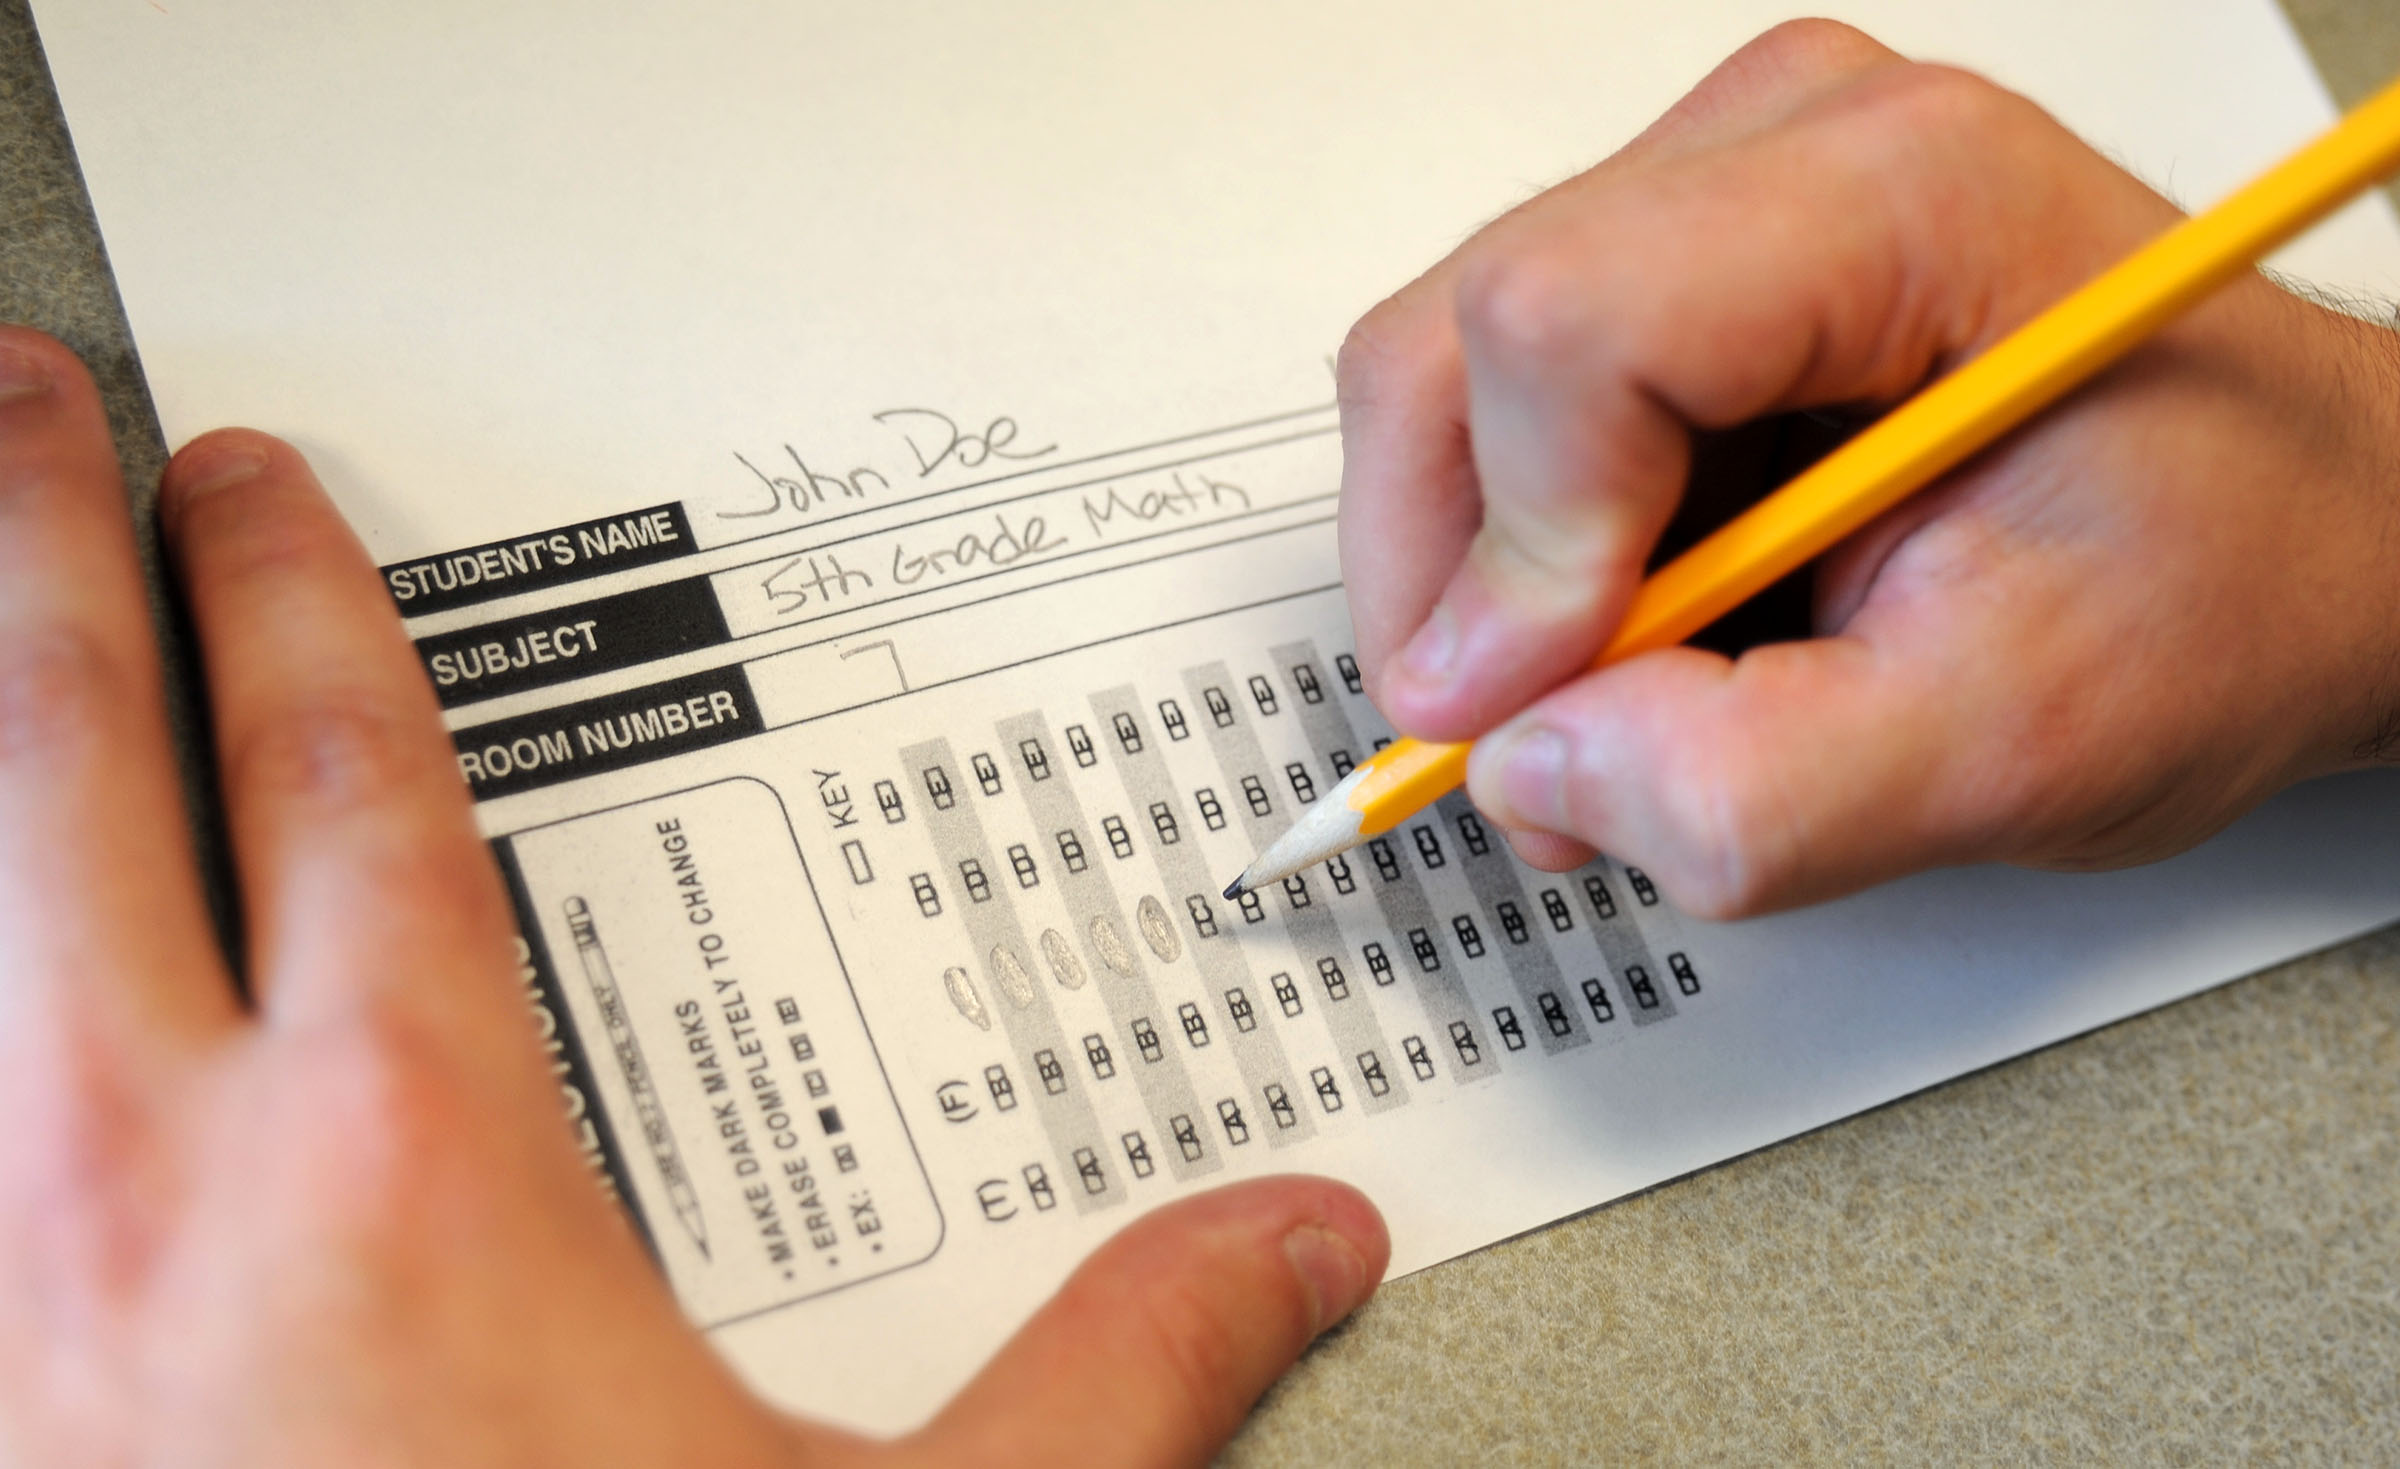 STUDENT'S NAME John Doe
SUBJECT 5th Grade Math
ROOM NUMBER 7
USE NO. 2 PENCIL ONLY
• MAKE DARK MARKS
• ERASE COMPLETELY TO CHANGE
• EX: A C D E
KEY
(T) (F)
A B D E
A B D E
A B D E
A B D E
A B D E
A B C D E
A B C D E
A B C D E
A B C D E
A B C D E
A B C
A B C
A B
A B
A